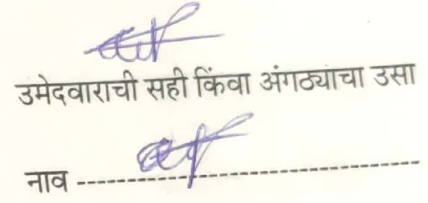 उमेदवाराची सही किंवा अंगठ्याचा उसा
नाव --------------------------------